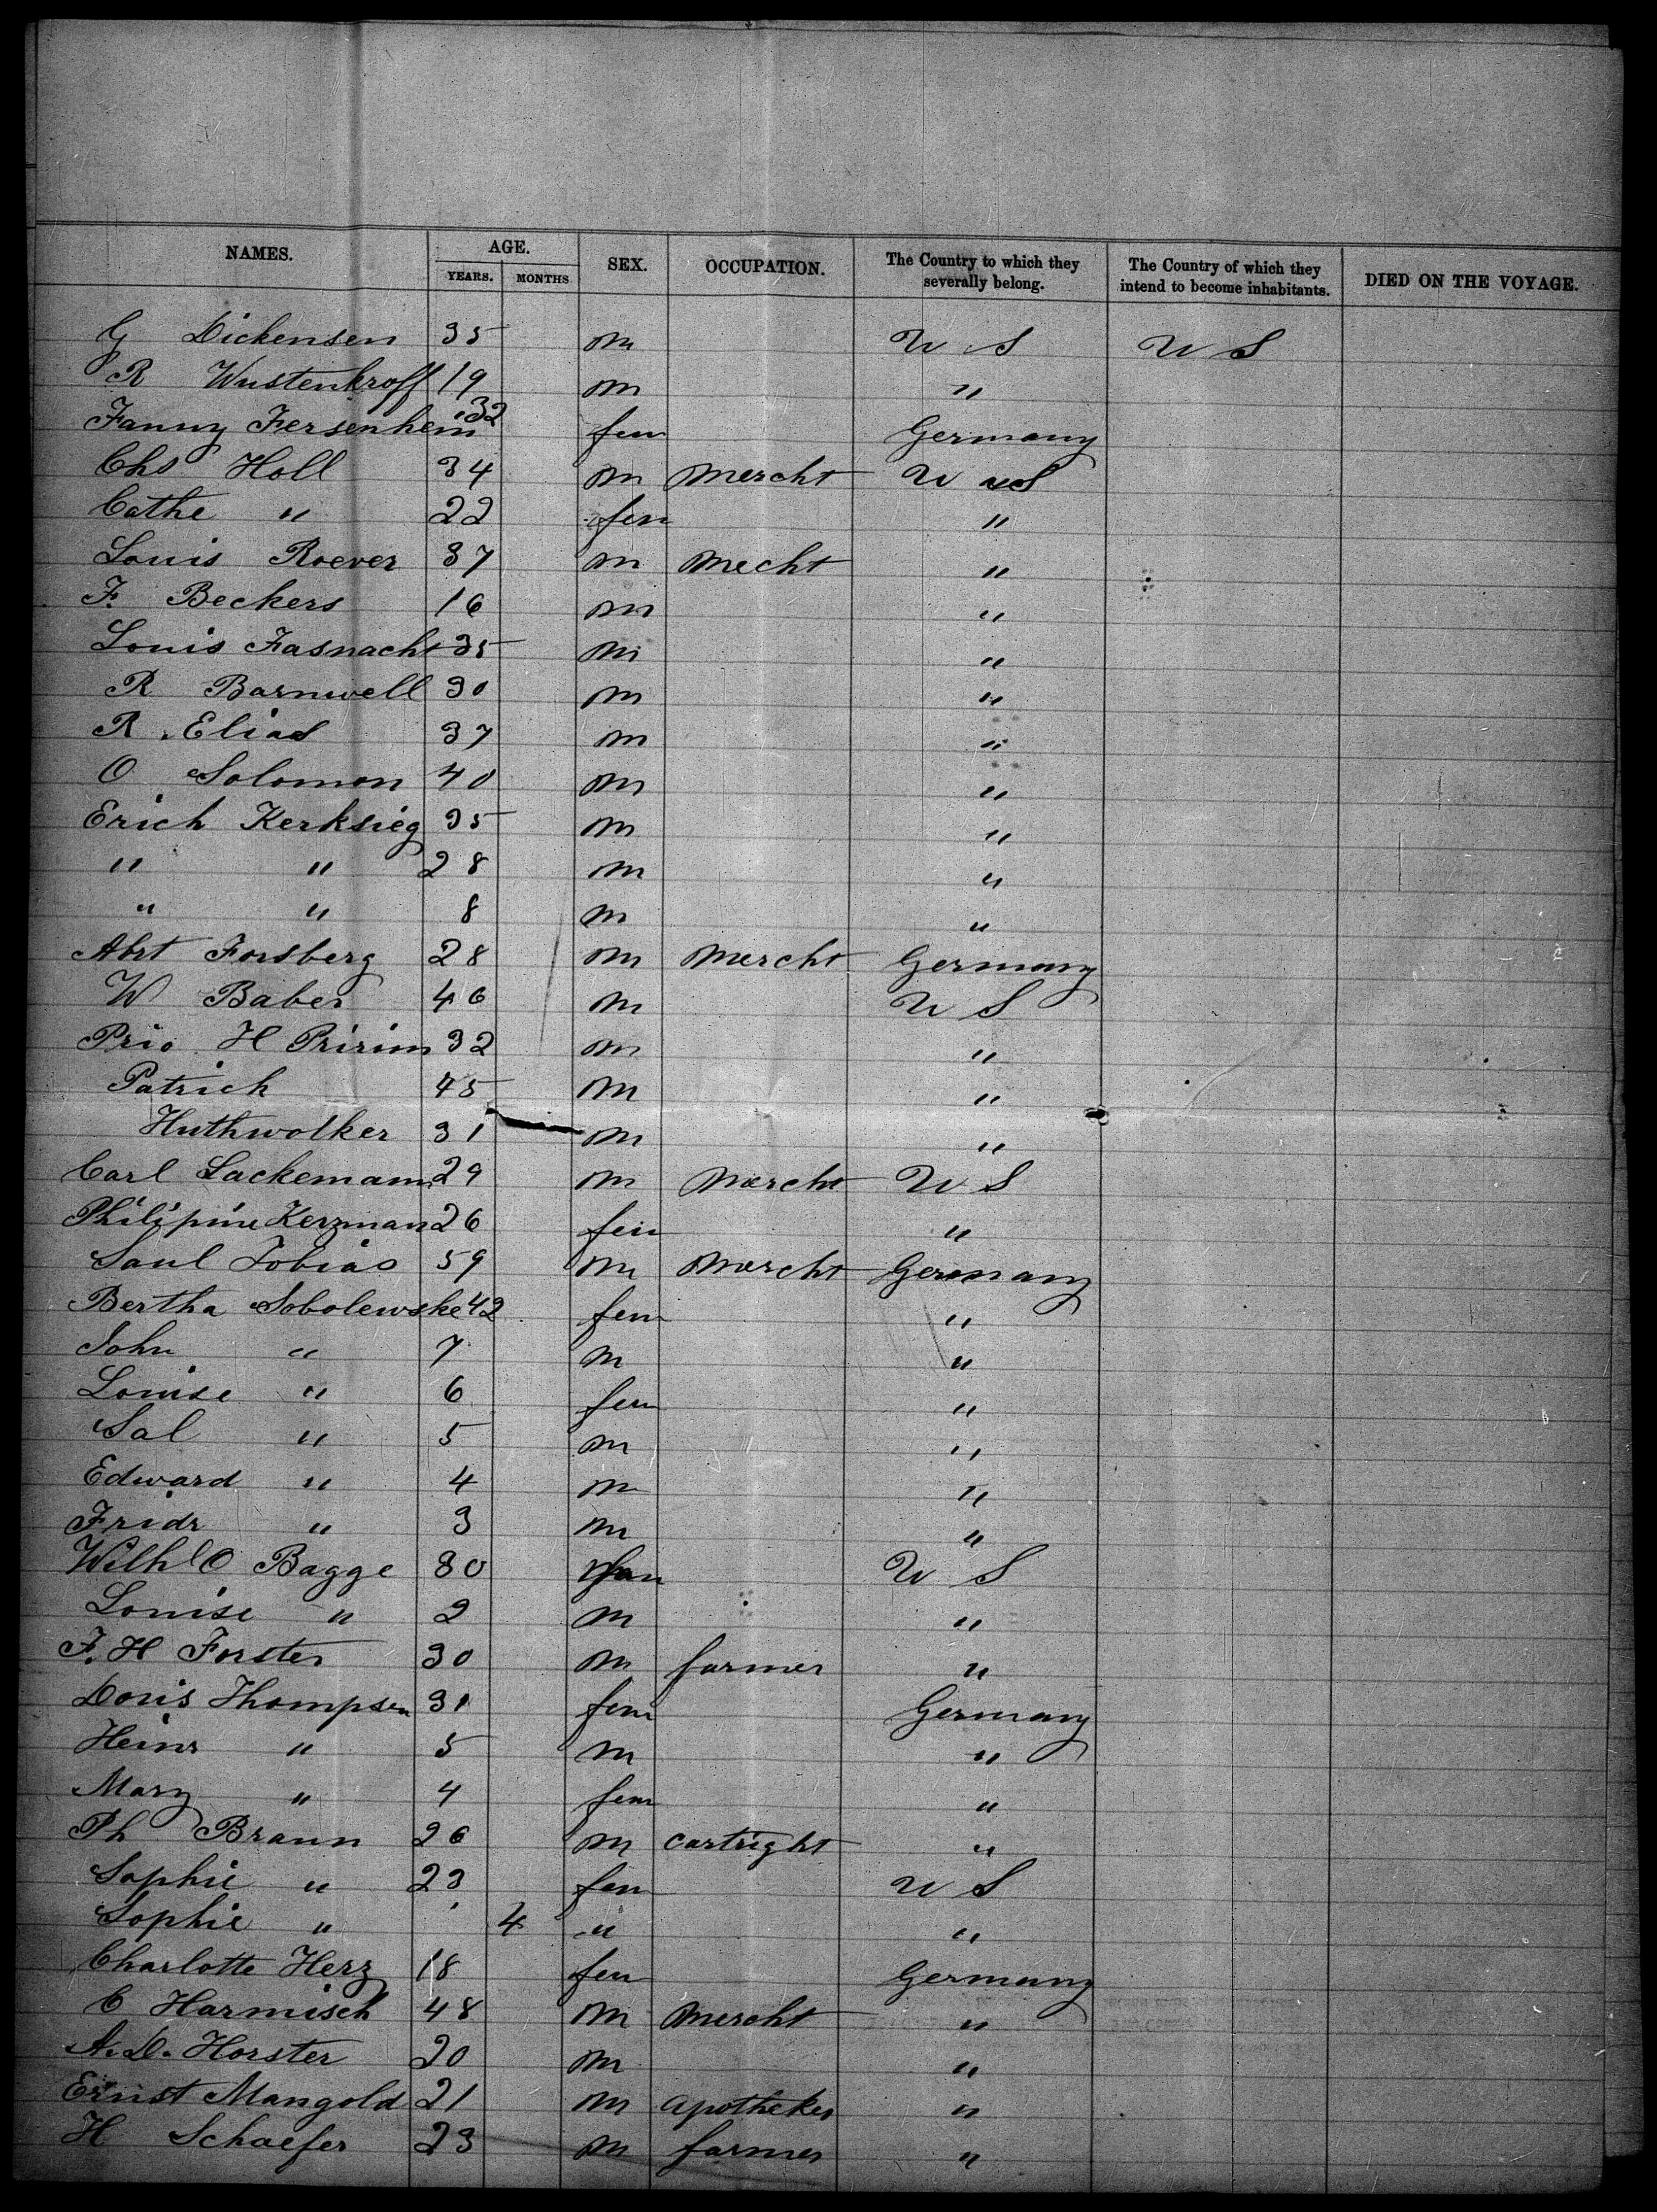 NAMES. AGE. SEX. OCCUPATION. The Country to which they severally belong. The Country of which they intend to become inhabitants. DIED ON THE VOYAGE.
YEARS. MONTHS
G Dickensen 35 m U S U S
R Wustenkroff 19 m "
Fanny Fersenheim 32 fem Germany
Chs Holl 34 m Mercht U S
Cathe " 22 fem "
Louis Roever 37 m Mecht "
F. Beckers 16 m "
Louis Fasnacht 35 m "
R Barnwell 30 m "
R Elias 37 m "
O Solomon 40 m "
Erich Kerksieg 35 m "
" " 28 m "
" " 8 m "
Abrt Forsberg 28 m Mercht Germany
W Baber 46 m U S
Prio H Pririm 32 m "
Patrick 45 m "
Huthwolker 31 m "
Carl Lackemann 29 m Mercht U S
Philipine Kerzman 26 fem "
Saul Tobias 59 m Mercht Germany
Bertha Sobolewske 42 fem "
John " 7 m "
Louise " 6 fem "
Sal " 5 m "
Edward " 4 m "
Fridr " 3 m "
Wilhl O Bagge 30 U S
Louise " 2 m "
F. H Forster 30 m farmer "
Doris Thompsen 31 fem Germany
Heinr " 5 m "
Mary " 4 fem "
Ph Braun 26 m cartright "
Sophie " 23 fem U S
Sophie " 4 " "
Charlotte Herz 18 fem Germany
C Harmisch 48 m Mercht "
A. D. Horster 20 m "
Ernst Mangold 21 m apotheker "
H Schaefer 23 m farmer "